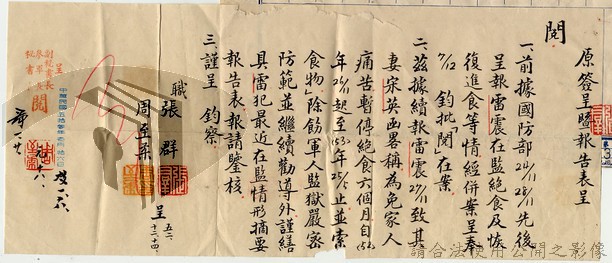 原簽呈暨報告表呈
閱
一、前據國防部24/11 28/11先後
呈報雷震在監絕食及恢
復進食等情經併案呈奉
7/12 鈞批「閱」在案
二、茲據續報雷震27/11致其
妻宋英函畧稱為免家人
痛苦暫停絕食六個月自(52)
年26/11起至(53)年25/5止並索
食物」除飭軍人監獄嚴密
防範並繼續勸導外謹繕
具雷犯最近在監情形摘要
報告表報請鑒核
三、謹呈 鈞察
職 張羣
周至柔
呈
五二、十二、十四、
呈
副秘書長
參軍長
秘書長
閱
中華民國五拾貳年
請合法使用公開之影像